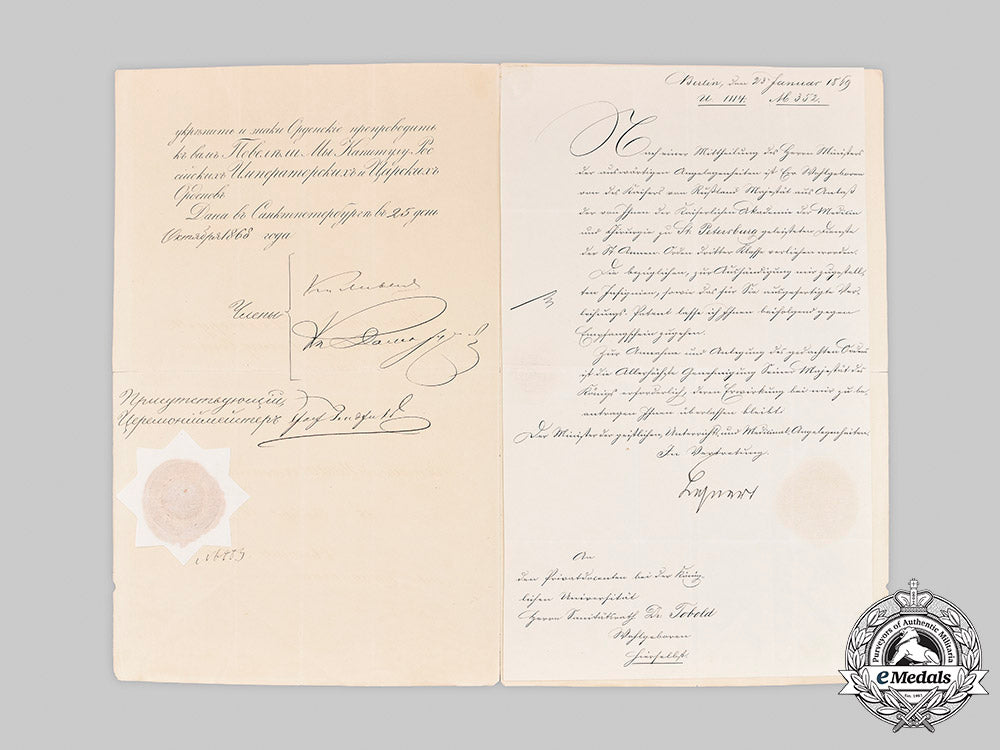 укрѣпить и знаки Орденскіе препроводить
къ вамъ Повелѣли Мы Капитулу Рос-
сійскихъ Императорскихъ и Царскихъ
Орденовъ.
Дана въ Санктпетербургѣ въ 25 день
Октября 1868 года
Члены
Присутствующій
Церемоніймейстеръ
№ 889
Berlin, den 23 Januar 1869
U. 1114. № 352.
Nach einer Mittheilung des Herrn Ministers
der auswärtigen Angelegenheiten ist Ew. Wohlgeboren
von des Kaisers von Rußland Majestät aus Anlaß
der von Ihnen der Kaiserlichen Akademie der Medicin
und Chirurgie zu St. Petersburg geleisteten Dienste
der St. Annen-Orden dritter Klasse verliehen worden.
Die bezüglichen, zur Aushändigung mir zugestell-
ten Insignien, sowie das für Sie ausgefertigte Ver-
leihungs-Patent lasse ich Ihnen beifolgend gegen
Empfangschein zugehen.
Zur Annahme und Anlegung des gedachten Ordens
ist die Allerhöchste Genehmigung Seiner Majestät des
Königs erforderlich, deren Erwirkung bei mir zu be-
antragen Ihnen überlassen bleibt.
Der Minister der geistlichen, Unterrichts- und Medicinal-Angelegenheiten.
In Vertretung.
Lehnert
An
den Privatdocenten bei der König-
lichen Universität
Herrn Sanitätsrath Dr. Tobold
Wohlgeboren
hierselbst.
Purveyors of Authentic Militaria
eMedals